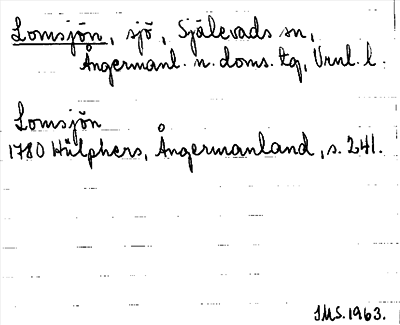 Lomsjön, sjö, Själevads sn,
Ångermanl. n. doms. tg, Vrnl. l.
Lomsjön
1780 Hülphers, Ångermanland, s. 241.
IMS. 1963.